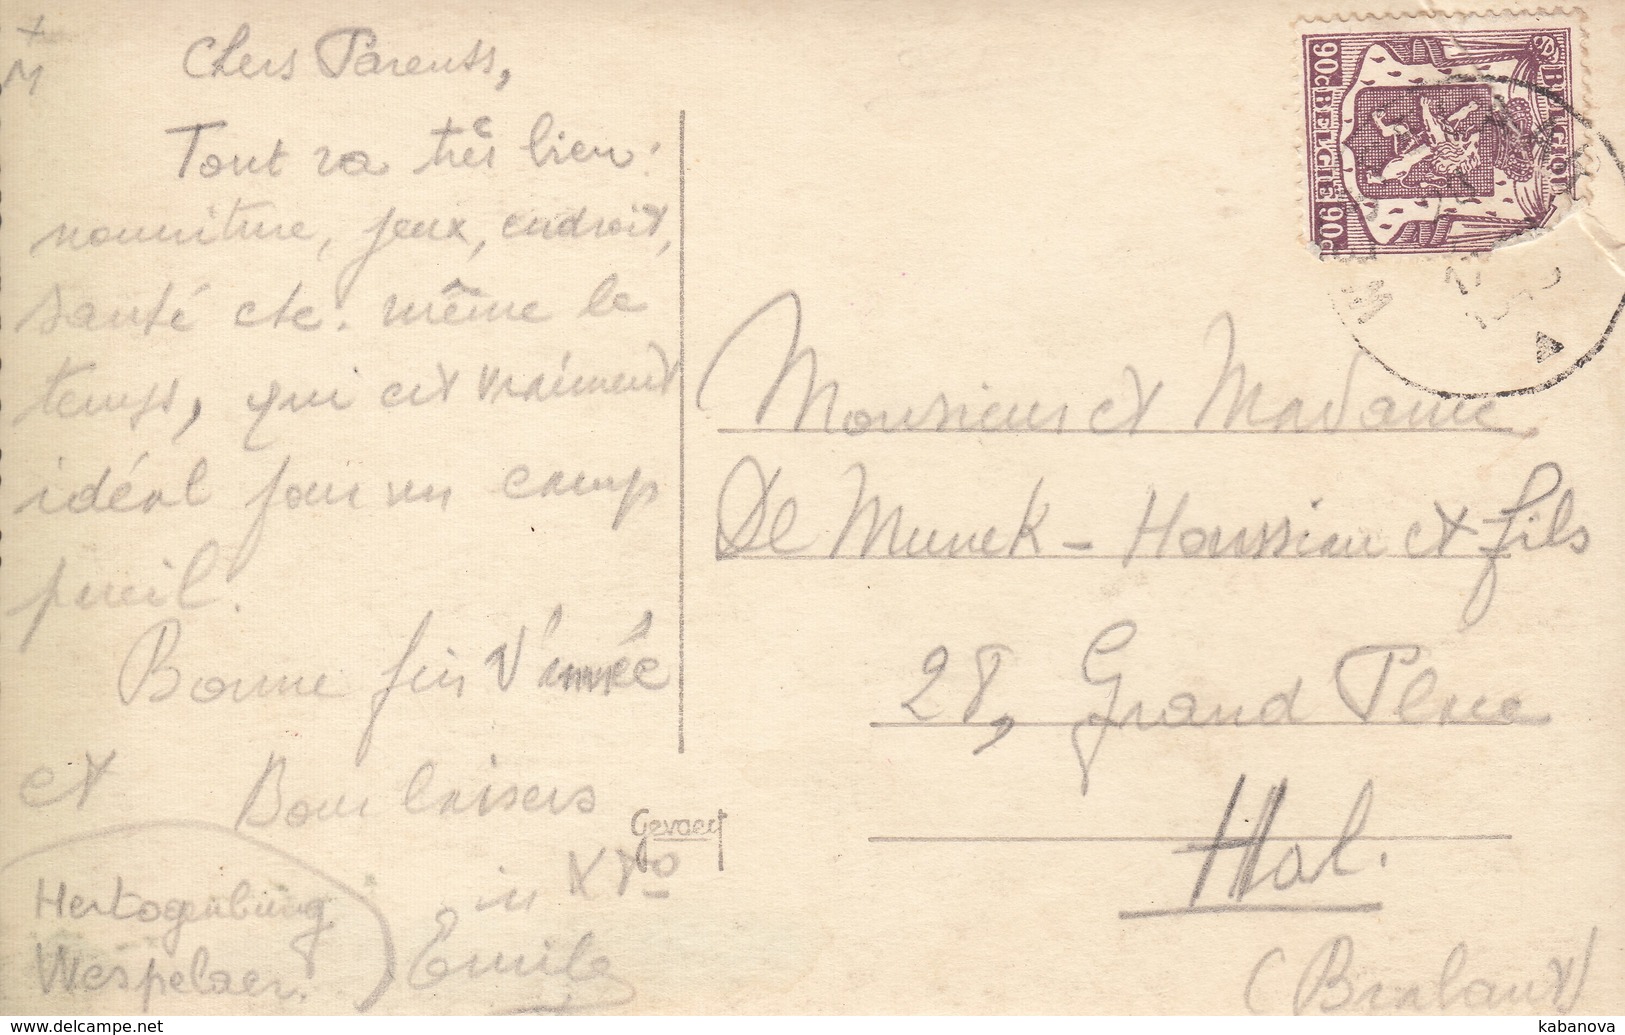 +
M
Chers Parents,
Tout va très bien.
nourriture, jeux, endroit,
santé etc. même le
temps, qui est vraiment
idéal pour un camp
pareil.
Bonne fin d'année
et Bons baisers
in Xto
Emile
Hertogenburg
Wespelaer.
Gevaert
BELGIQUE
90c BELGIE 90c
Monsieur et Madame
De Munck - Houssiau et fils
28, Grand Place
Hal.
(Brabant)
www.delcampe.net
kabanova